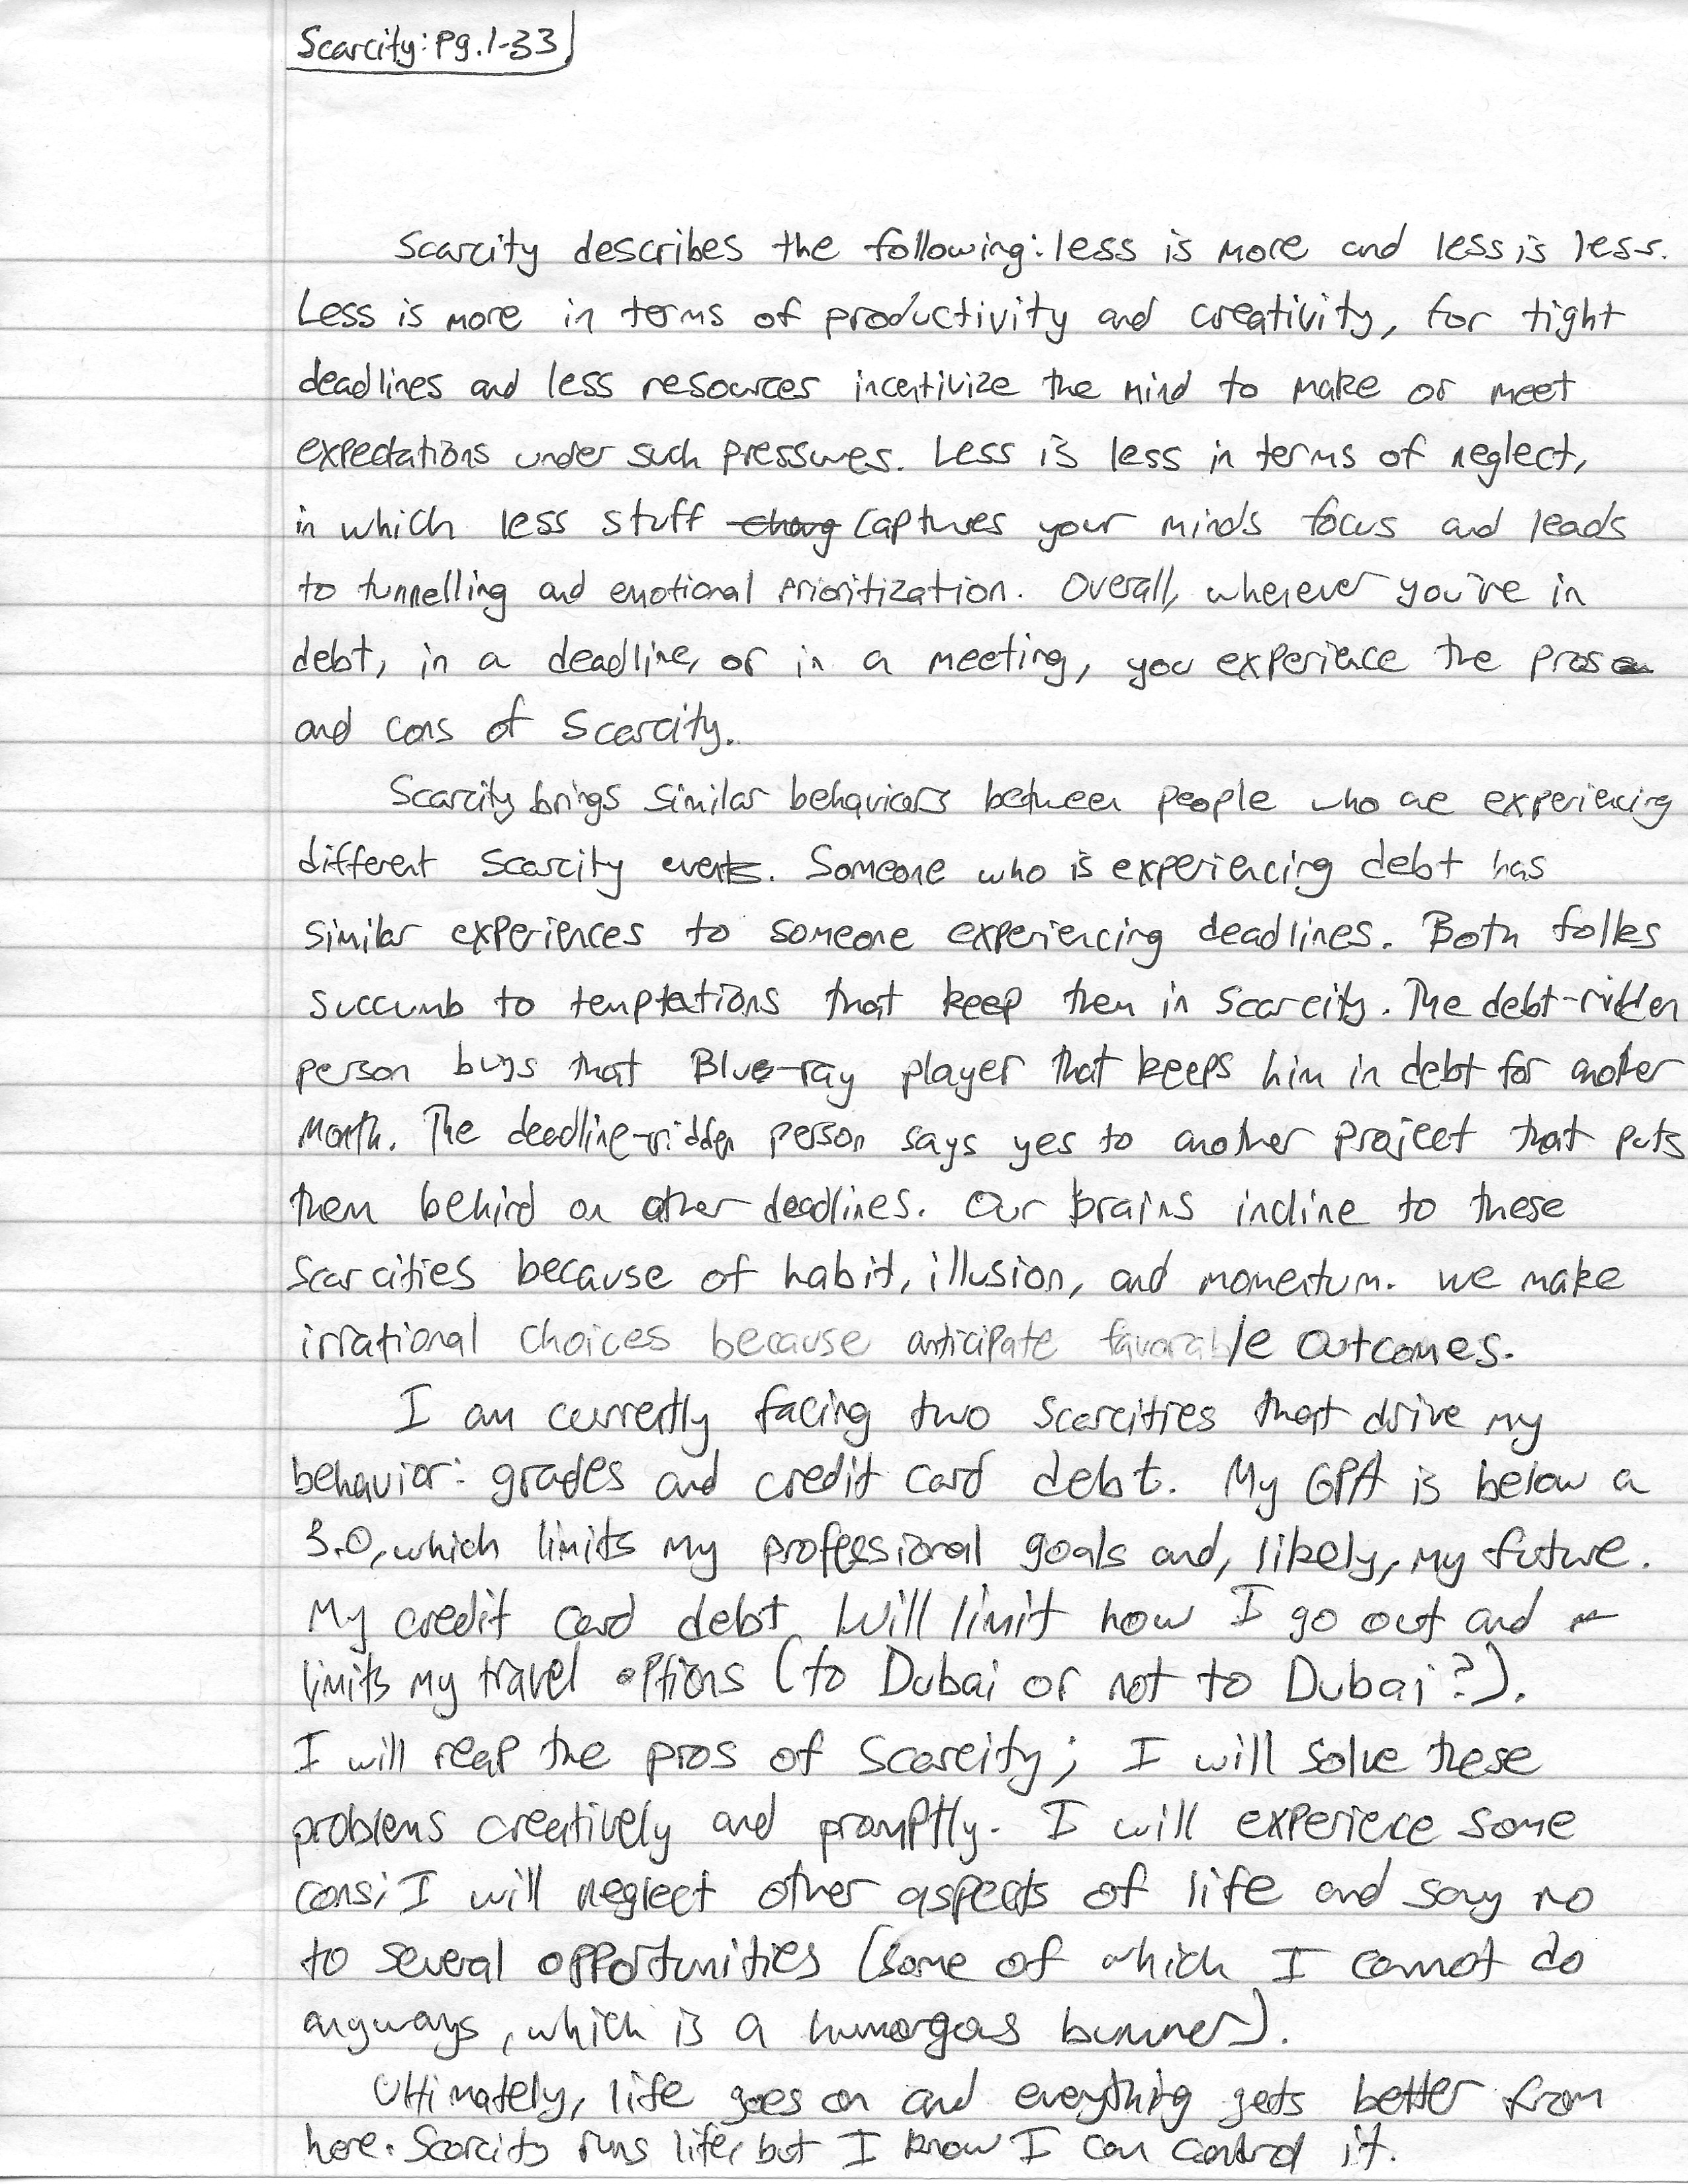 Scarcity: Pg. 1-33
Scarcity describes the following: less is more and less is less.
Less is more in terms of productivity and creativity, for tight
deadlines and less resources incentivize the mind to make or meet
expectations under such pressures. Less is less in terms of neglect,
in which less stuff captures your minds focus and leads
to tunnelling and emotional prioritization. Overall, wherever you're in
debt, in a deadline, or in a meeting, you experience the pros
and cons of Scarcity.
Scarcity brings similar behaviors between people who are experiencing
different scarcity events. Someone who is experiencing debt has
similar experiences to someone experiencing deadlines. Both folks
succumb to temptations that keep them in Scarcity. The debt-ridden
person buys that Blue-ray player that keeps him in debt for another
month. The deadline-ridden person says yes to another project that puts
them behind on other deadlines. Our brains incline to these
Scarcities because of habit, illusion, and momentum. we make
irrational choices because anticipate favorable outcomes.
I am currently facing two scarcities that drive my
behavior: grades and credit card debt. My GPA is below a
3.0, which limits my professional goals and, likely, my future.
My credit card debt will limit how I go out and
limits my travel options (to Dubai or not to Dubai?).
I will reap the pros of Scarcity; I will solve these
problems creatively and promptly. I will experience some
cons; I will neglect other aspects of life and say no
to several opportunities (some of which I cannot do
anyways, which is a humorgous bummer).
Ultimately, life goes on and everything gets better from
here. Scarcity runs life, but I know I can control it.